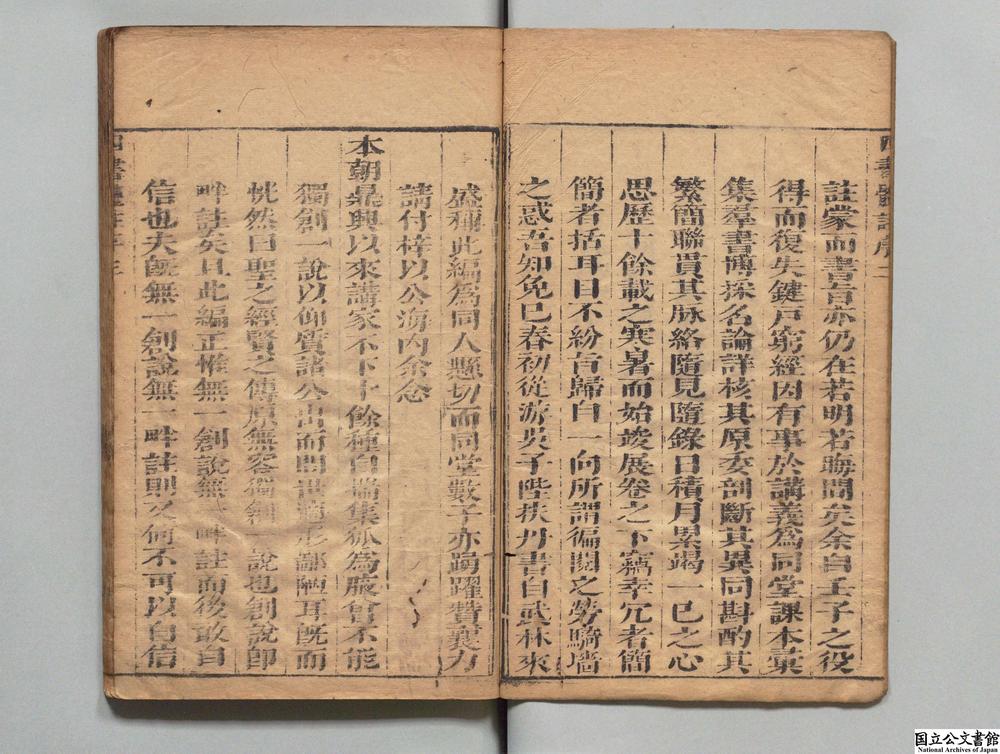 註蒙而書旨亦仍在若明若晦間矣余自壬子之役
得而復失鍵戸窮經因有事於講義為同堂課本彙
集羣書博採名論詳核其原委剖斷其異同斟酌其
繁簡聯貫其脉絡隨見隨錄日積月累竭一已之心
思歷十餘載之寒暑而始竣展卷之下竊幸冗者簡
簡者括耳目不紛旨歸自一向所謂徧閱之勞騎墻
之惑吾知免已春初從游吳子陛扶丹書自武林來
盛稱此編為同人懸切而同堂數子亦踴躍贊襄力
請付梓以公海内余念
本朝鼎興以來講家不下十餘種自揣集狐為腋曾不能
獨創一說以仰質諸公出而問世適形鄙陋耳既而
恍然曰聖之經賢之傳原無容獨創一說也創說即
畔註矣且此編正惟無一創說無一畔註而後敢自
信也夫既無一創說無一畔註則又何不可以自信
國立公文書館
National Archives of Japan